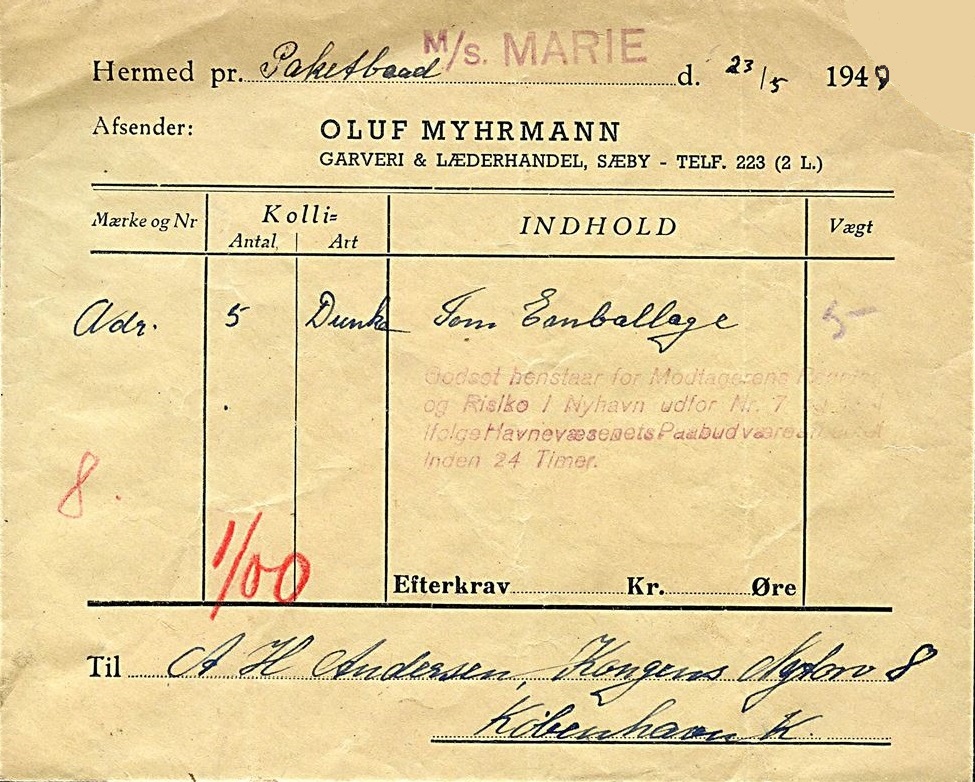 M/s. MARIE
Hermed pr. Paketbaad d. 23/5 1949
Afsender: OLUF MYHRMANN
GARVERI & LÆDERHANDEL, SÆBY - TELF. 223 (2 L.)
Mærke og Nr Kolli= INDHOLD Vægt
Antal, Art
Adr. 5 Dunke Tom Emballage 5-
Godset henstaar for Modtagerens
og Risiko i Nyhavn udfor Nr. 7
Ifølge Havnevæsenets Paabud være
inden 24 Timer.
8.
1/00
Efterkrav Kr. Øre
Til A H Andersen, Kongens Nytorv 8
København K.